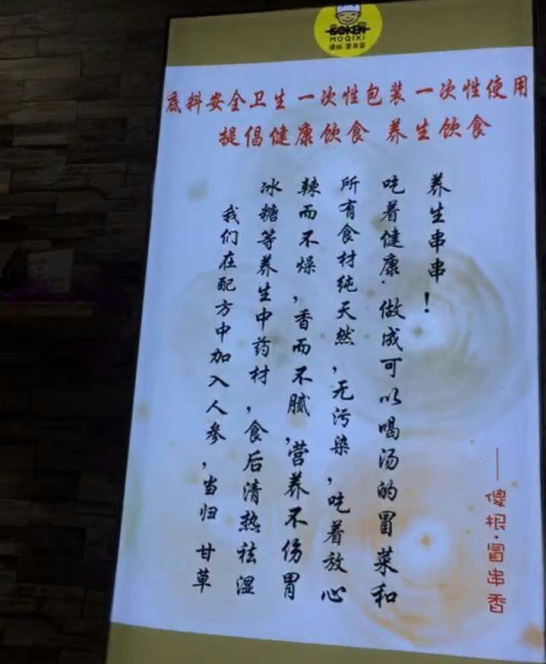 MOQIXI
底料安全卫生 一次性包装 一次性使用
提倡健康饮食 养生饮食
我们在配方中加入人参，当归 甘草
冰糖等养生中药材，食后清热祛湿
辣而不燥，香而不腻，营养不伤胃
所有食材纯天然，无污染，吃着放心
吃着健康·做成可以喝汤的冒菜和
养生串串！
——傻根·冒串香